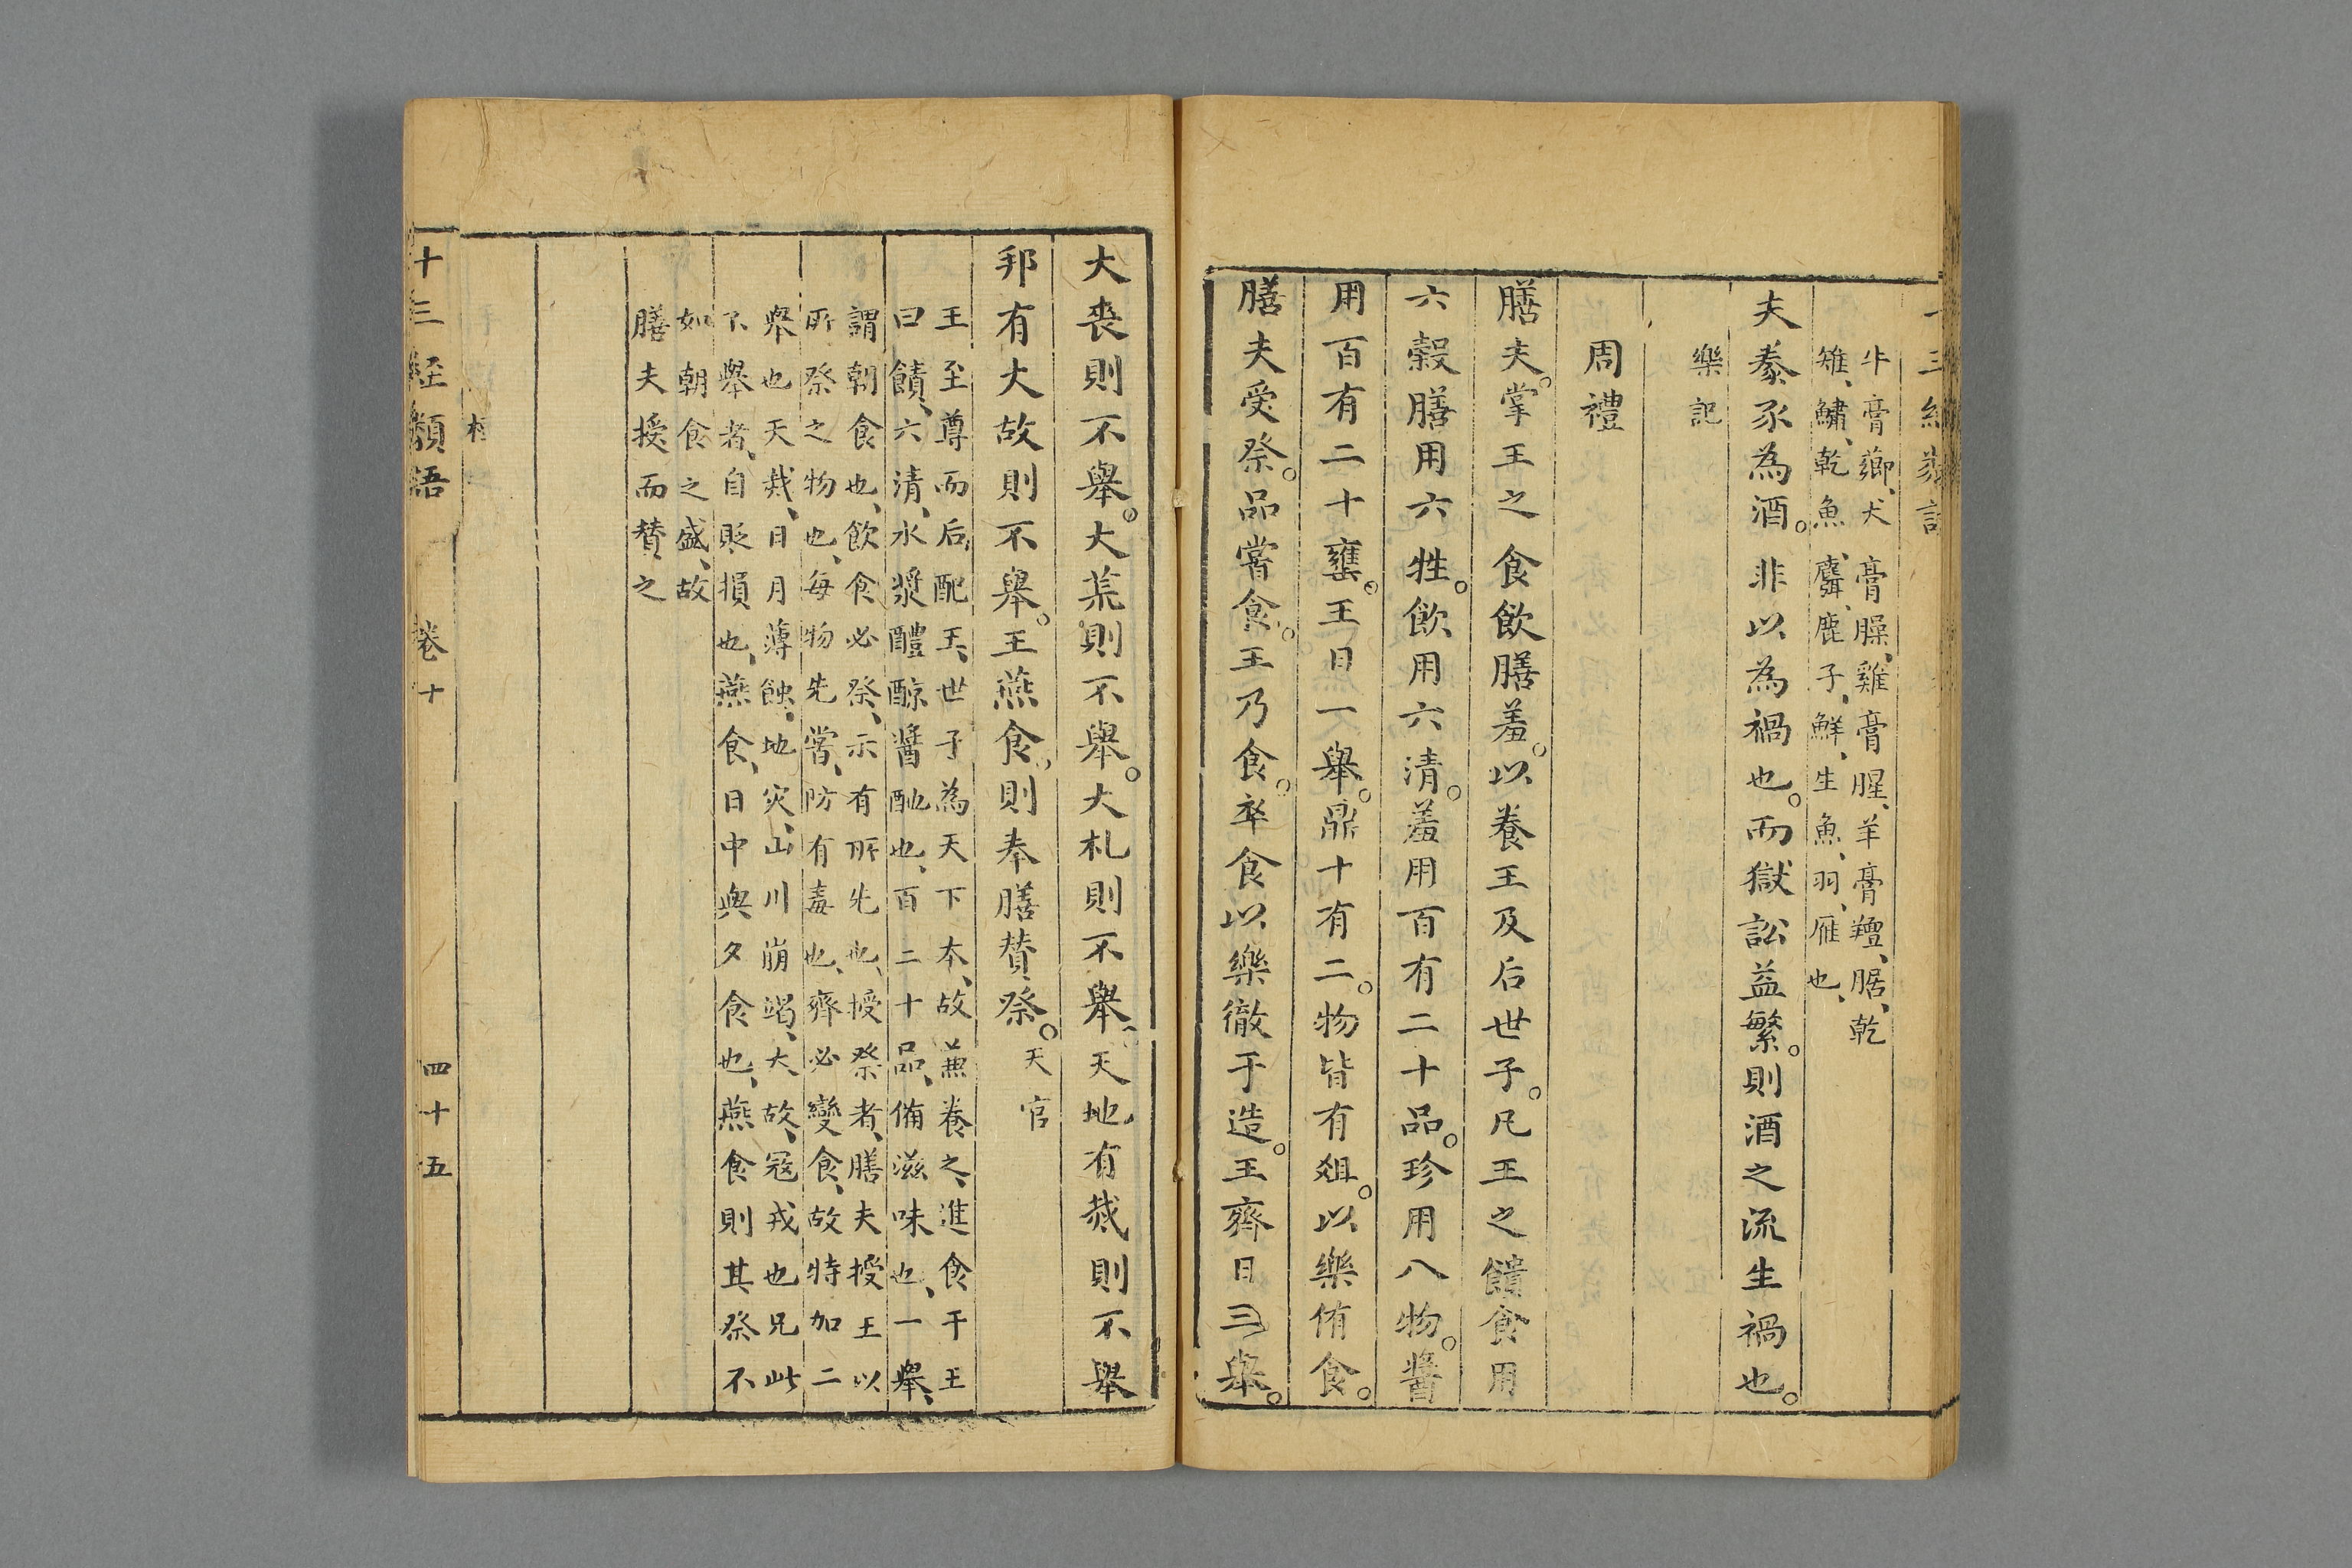 牛膏薌、犬膏臊、雞膏腥、羊膏羶、腒、乾
雉、鱐、乾魚、麛、鹿子、鮮、生魚、羽、雁也、
夫豢豕為酒。非以為禍也。而獄訟益繁。則酒之流生禍也。
樂記
周禮
膳夫。掌王之食飲膳羞。以養王及后世子。凡王之饋食用
六穀膳用六牲。飲用六清。羞用百有二十品。珍用八物。醬
用百有二十罋。王日一舉。鼎十有二。物皆有俎。以樂侑食。
膳夫受祭。品嘗食。王乃食。卒食以樂徹于造。王齊日三舉。
大喪則不舉。大荒則不舉。大札則不舉。天地有烖則不舉
邦有大故則不舉。王燕食。則奉膳贊祭。天官
王至尊而后配王、世子為天下本、故兼養之、進食于王
曰饋、六清、水漿醴䣼醫酏也、百二十品、備滋味也、一舉、
謂朝食也、飲食必祭、示有所先也、授祭者、膳夫授王以
所祭之物也、每物先嘗、防有毒也、齊必變食、故特加二
舉也天烖、日月薄蝕、地灾、山川崩竭、大故、寇戎也凡此
不舉者、自貶損也、燕食、日中與夕食也、燕食則其祭不
如朝食之盛、故
膳夫授而贊之
十三經類語 卷十 四十五